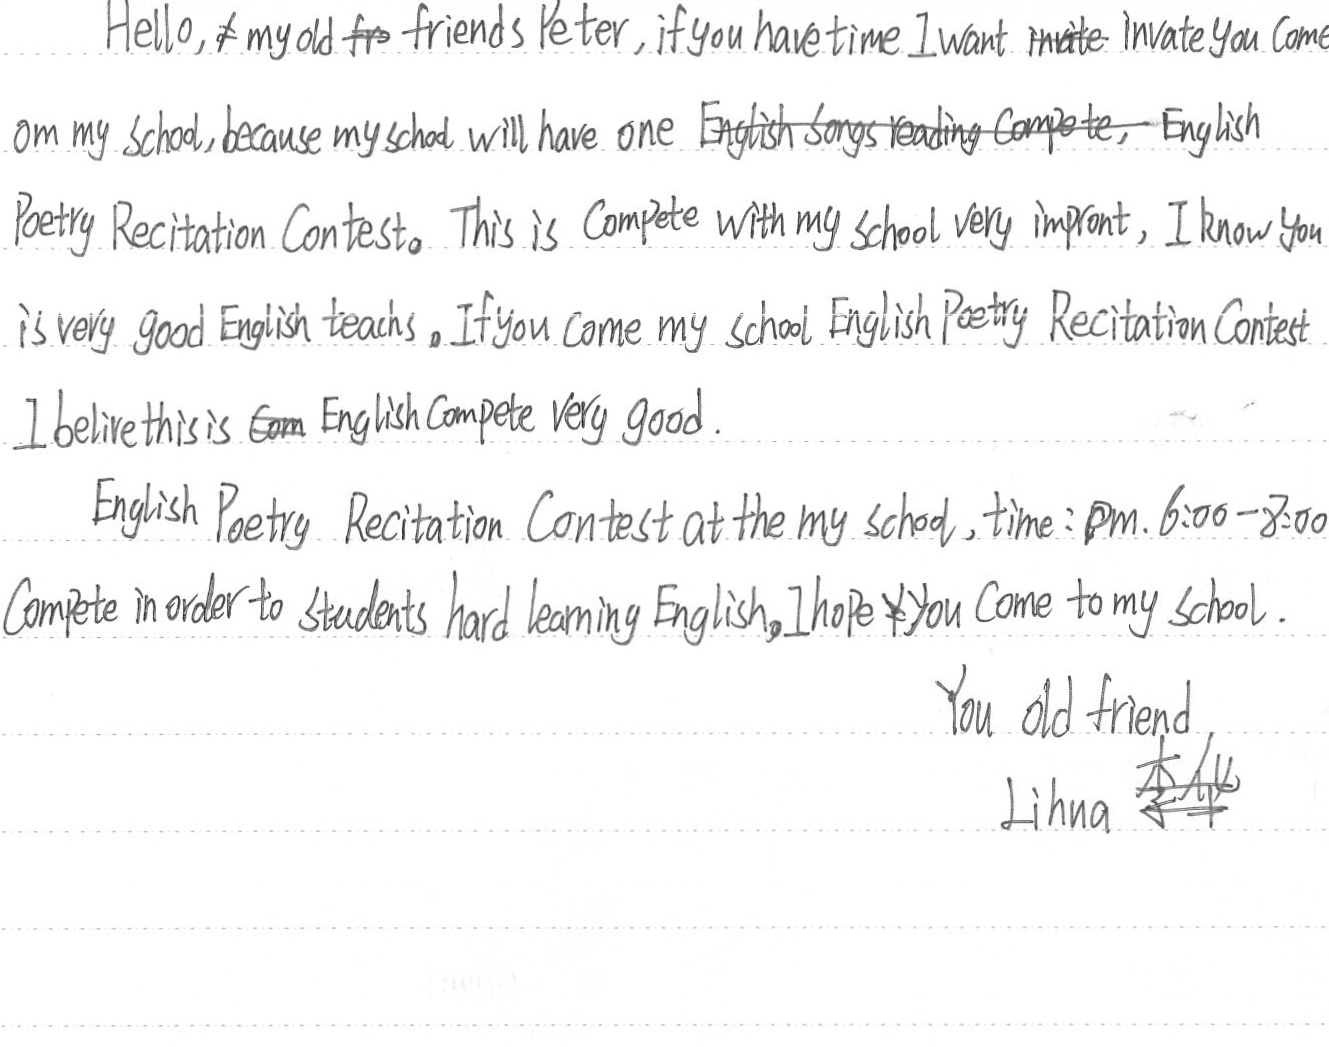 Hello, my old friends Peter, if you have time I want invate you come
om my school, because my school will have one English
Poetry Recitation Contest。 This is compete with my school very impront, I know you
is very good English teachs。If you come my school English Poetry Recitation Contest
I belive this is English compete very good.
English Poetry Recitation Contest at the my school, time: pm. 6:00-8:00
Compete in order to students hard learning English。I hope you come to my school.
You old friend
Lihua